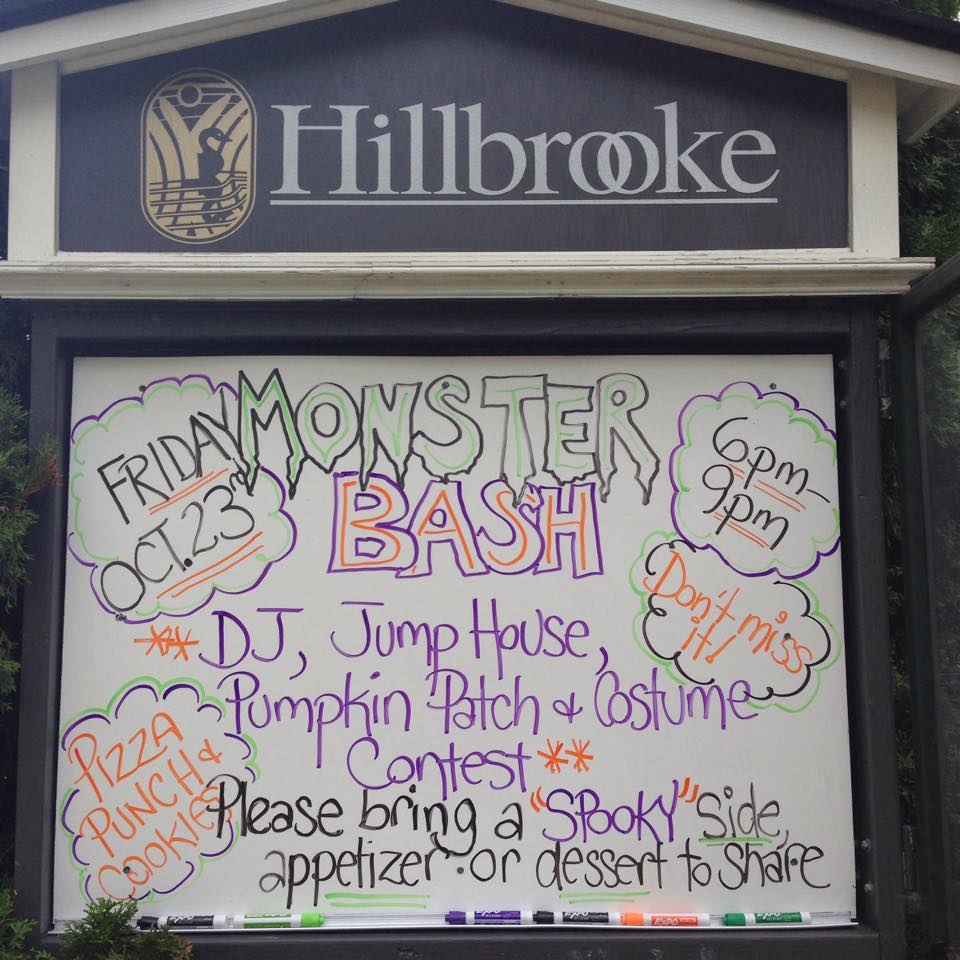 Hillbrooke
FRIDAY
OCT. 23rd
MONSTER
BASH
6pm-
9pm
Don't miss
it!
** DJ, Jump House,
Pumpkin Patch & Costume
Contest **
PIZZA
PUNCH &
COOKIES
Please bring a "SPOOKY" side,
appetizer or dessert to share
EXPO
EXPO
EXPO
EXPO